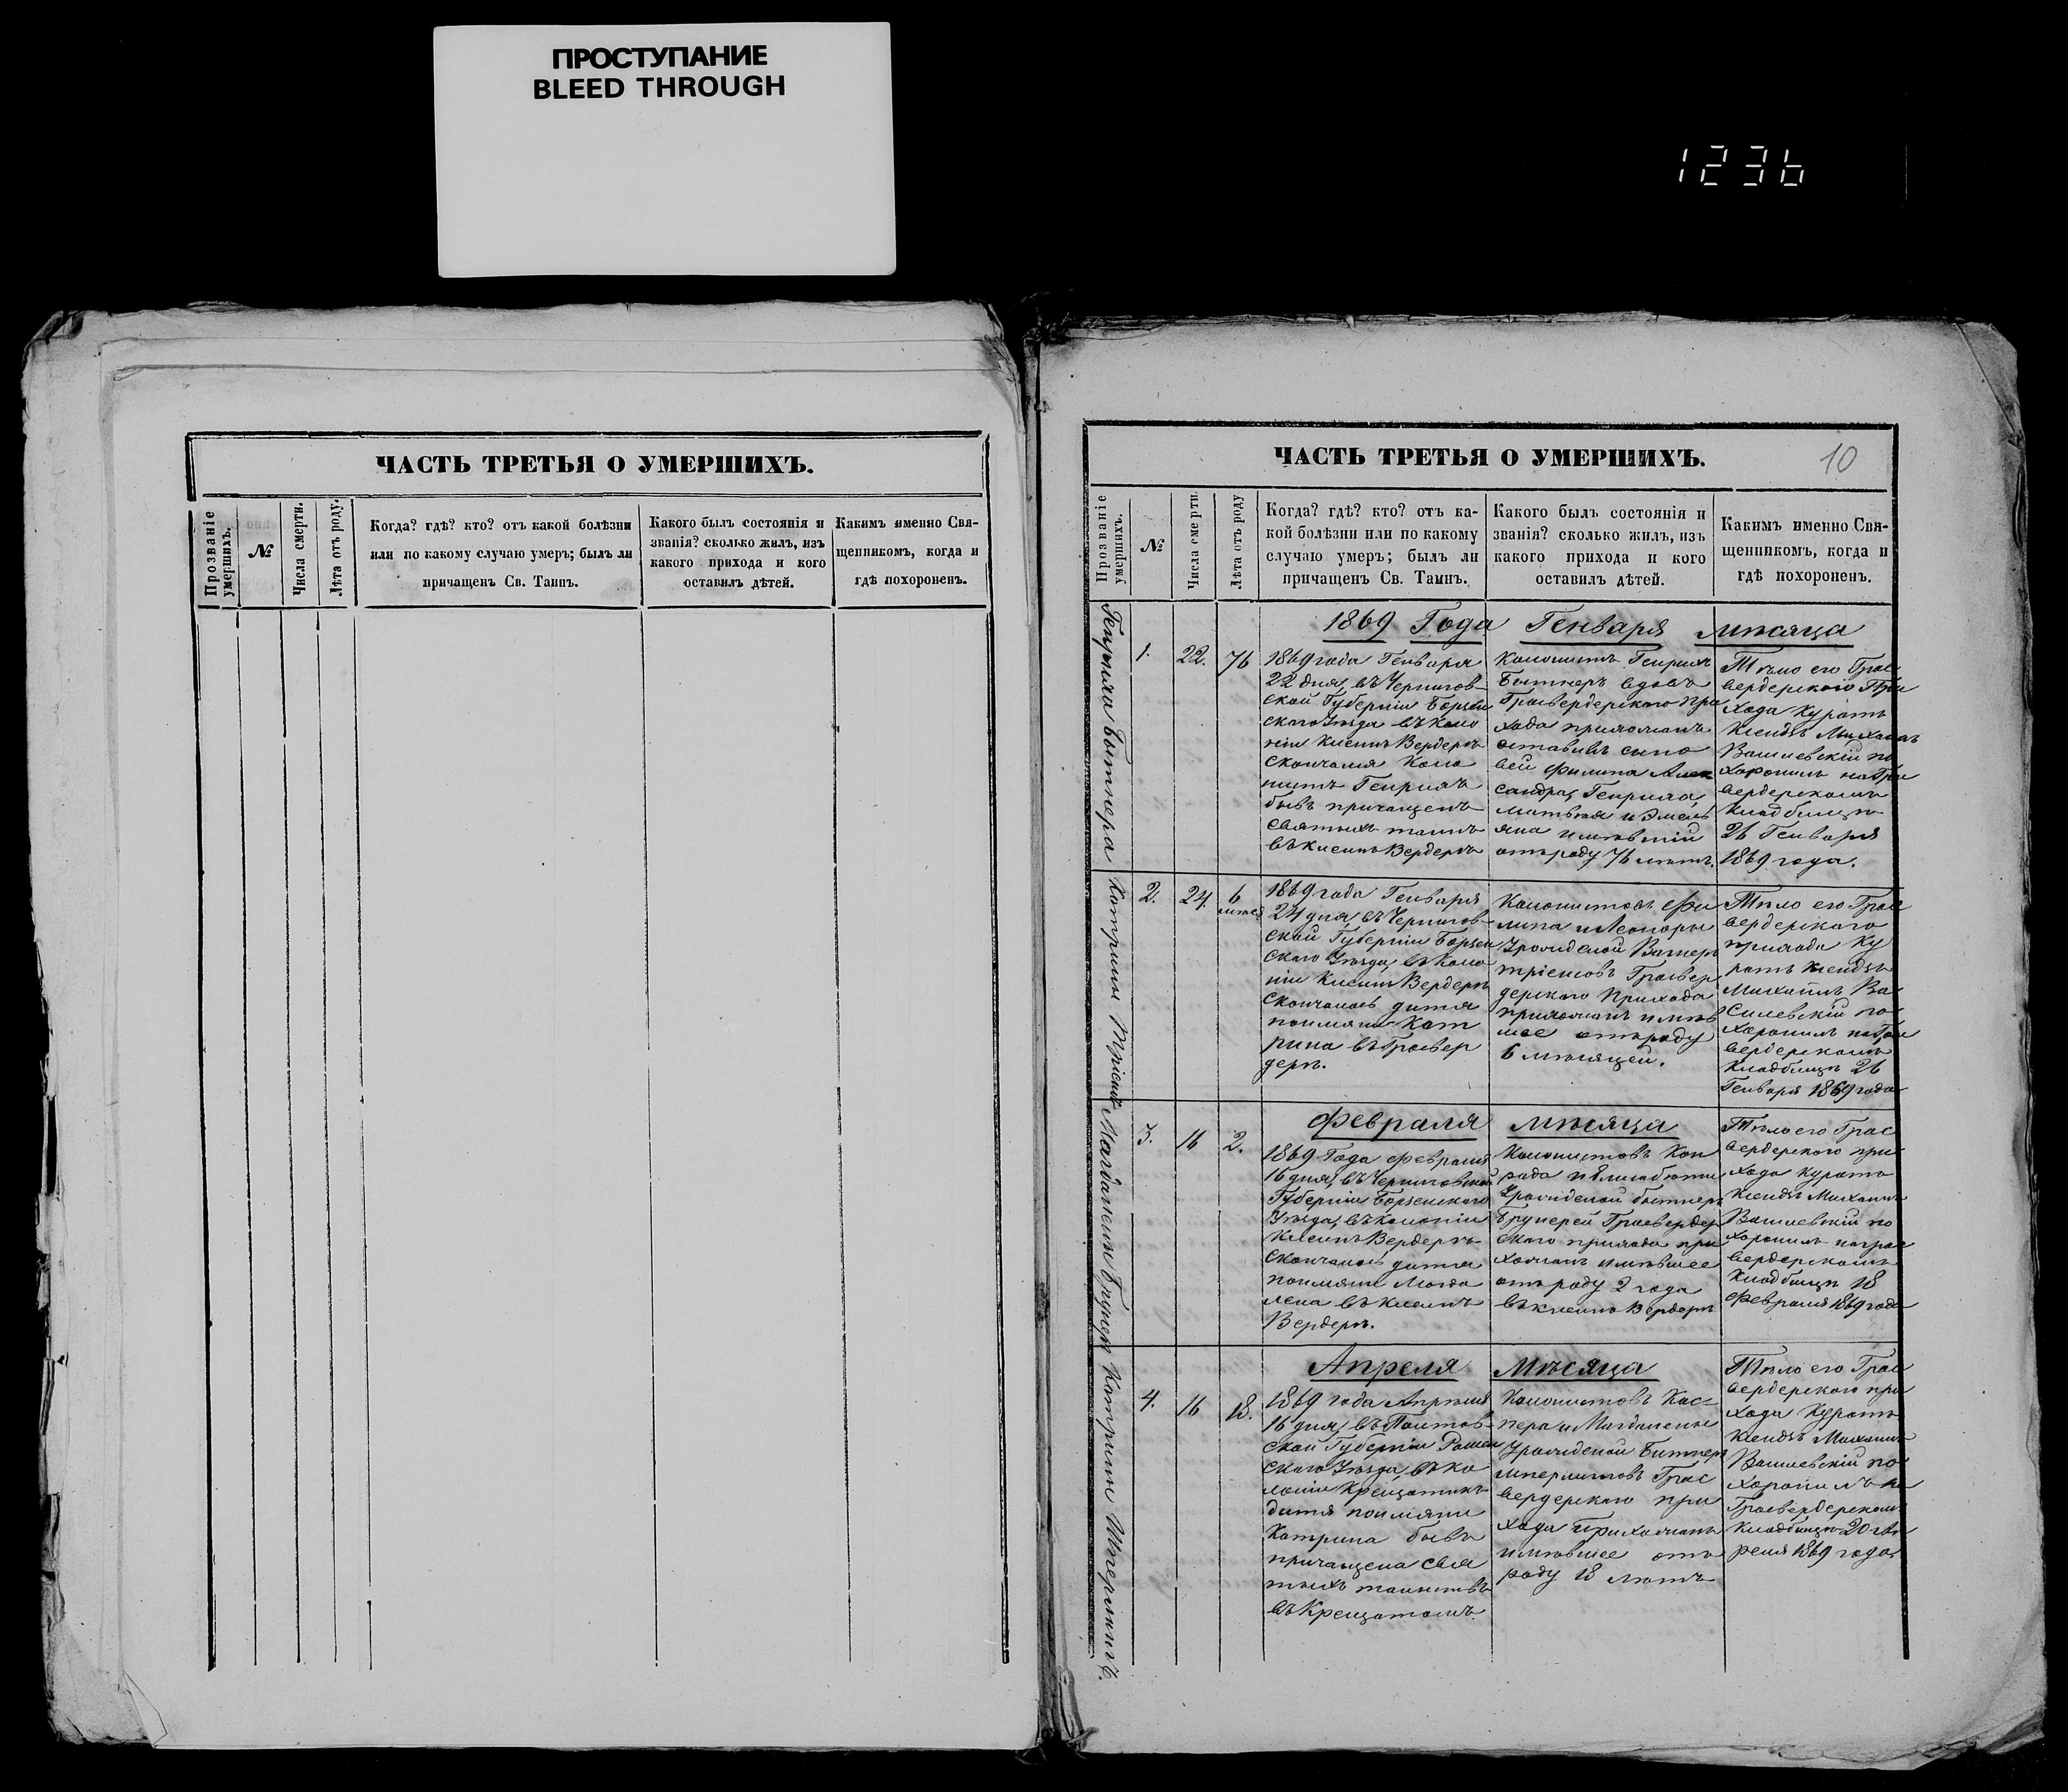 ПРОСТУПАНИЕ
BLEED THROUGH
1236
ЧАСТЬ ТРЕТЬЯ О УМЕРШИХЪ.
Прозваніе
умершихъ.
№
Числа смерти.
Лѣта отъ роду.
Когда? гдѣ? кто? отъ какой болѣзни
или по какому случаю умеръ; былъ ли
причащенъ Св. Таинъ.
Какого былъ состоянія и
званія? сколько жилъ, изъ
какого прихода и кого
оставилъ дѣтей.
Какимъ именно Свя-
щенникомъ, когда и
гдѣ похороненъ.
ЧАСТЬ ТРЕТЬЯ О УМЕРШИХЪ.
10
Прозваніе
умершихъ.
№
Числа смерти.
Лѣта отъ роду
Когда? гдѣ? кто? отъ ка-
кой болѣзни или по какому
случаю умеръ; былъ ли
причащенъ Св. Таинъ.
Какого былъ состоянія и
званія? сколько жилъ, изъ
какого прихода и кого
оставилъ дѣтей.
Какимъ именно Свя-
щенникомъ, когда и
гдѣ похороненъ.
1869 Года Генваря мѣсяца
Генриха Битнера
1.
22.
76
1869 года Генваря
22 дня, въ Чернигов-
ской Губерніи Борзен
скаго Уѣзда въ Коло
ніи Клеинъ Вердеръ
скончался Коло
нистъ Генрихъ
бывъ причащенъ
святыхъ таинъ
въ Клеинъ Вердерѣ
Колонистъ Генрихъ
Битнеръ вдовъ
Гросвердерскаго при
хода прихожанъ
оставивъ сыно
вей Филипа Алек
сандра, Генриха,
Матвѣя и Эмель
яна имѣвшій
отъ роду 76 лѣтъ.
Тѣло его Грос
вердерскаго При
хода Куратъ
Ксендзъ Михаилъ
Василевскій по
хоронилъ на Грос
вердерскомъ
Кладбищѣ
26 Генваря
1869 года.
Катрины
2.
24.
6
1869 года Генваря
24 дня, въ Чернигов-
ской Губерніи Борзен
скаго Уѣзда, въ Коло
ніи Клеинъ Вердеръ
скончалось дитя
по имяни Кат
рина въ Гросвер
дерѣ.
Колонистовъ Фи
липа и Леоноры
Урожденой Вагнеръ
Гросвер
дерскаго Прихода
прихожанъ имѣв
шее отъ роду
6 мѣсяцей.
Тѣло его Грос
вердерскаго
прихода Ку
ратъ Ксендзъ
Михаилъ Ва
силевскій по
хоронилъ на Грос
вердерскомъ
Кладбищѣ 26
Генваря 1869 года
Февраля мѣсяца
Магдалены Брунер
3.
16
2.
1869 Года Февраля
16 дня, въ Черниговской
Губерніи Борзенскаго
Уѣзда, въ колоніи
Клеинъ Вердеръ
скончалось дитя
по имяни Магда
лена въ Клеинъ
Вердерѣ.
Колонистовъ Кон
рада и Елисабеты
Урожденой Битнеръ
Брунерей Гросвердер
скаго прихода при
хожанъ имѣвшее
отъ роду 2 года
въ Клеинъ Вердерѣ
Тѣло его Грос
вердерскаго при
хода Куратъ
Ксендзъ Михаилъ
Василевскій по
хоронилъ на Грос
вердерскомъ
Кладбищѣ 18
Февраля 1869 года
Апреля Мѣсяца
Катрины
4.
16
18.
1869 года Апреля
16 дня, въ Полтав-
ской Губерніи Ромен
скаго Уѣзда, въ ко
лоніи Крещатикъ
дитя по имяни
Катрина бывъ
причащена свя
тыхъ таинствъ
въ Крещатомъ.
Колонистовъ Кас-
пера и Магдалены
Урожденой Битнеръ
Грос
вердерскаго при
хода Прихожанъ
имѣвшее отъ
роду 18 лѣтъ
Тѣло его Грос
вердерскаго при
хода Куратъ
Ксендзъ Михаилъ
Василевскій по
хоронилъ на
Гросвердерском
Кладбищѣ 20 Ап
реля 1869 года